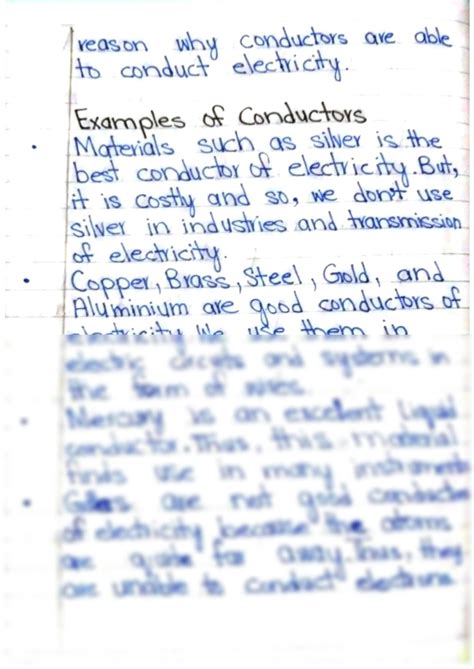 reason why conductors are able
to conduct electricity.
Examples of Conductors
• Materials such as silver is the
best conductor of electricity. But,
it is costly and so, we don't use
silver in industries and transmission
of electricity.
• Copper, Brass, Steel, Gold, and
Aluminium are good conductors of
electricity We use them in
electric circuits and systems in
the form of wires.
• Mercury is an excellent liquid
conductor. Thus, this material
finds use in many instruments
• are not good
of electricity because the atoms
are quite far away. Thus, they
are unable to conduct electrons